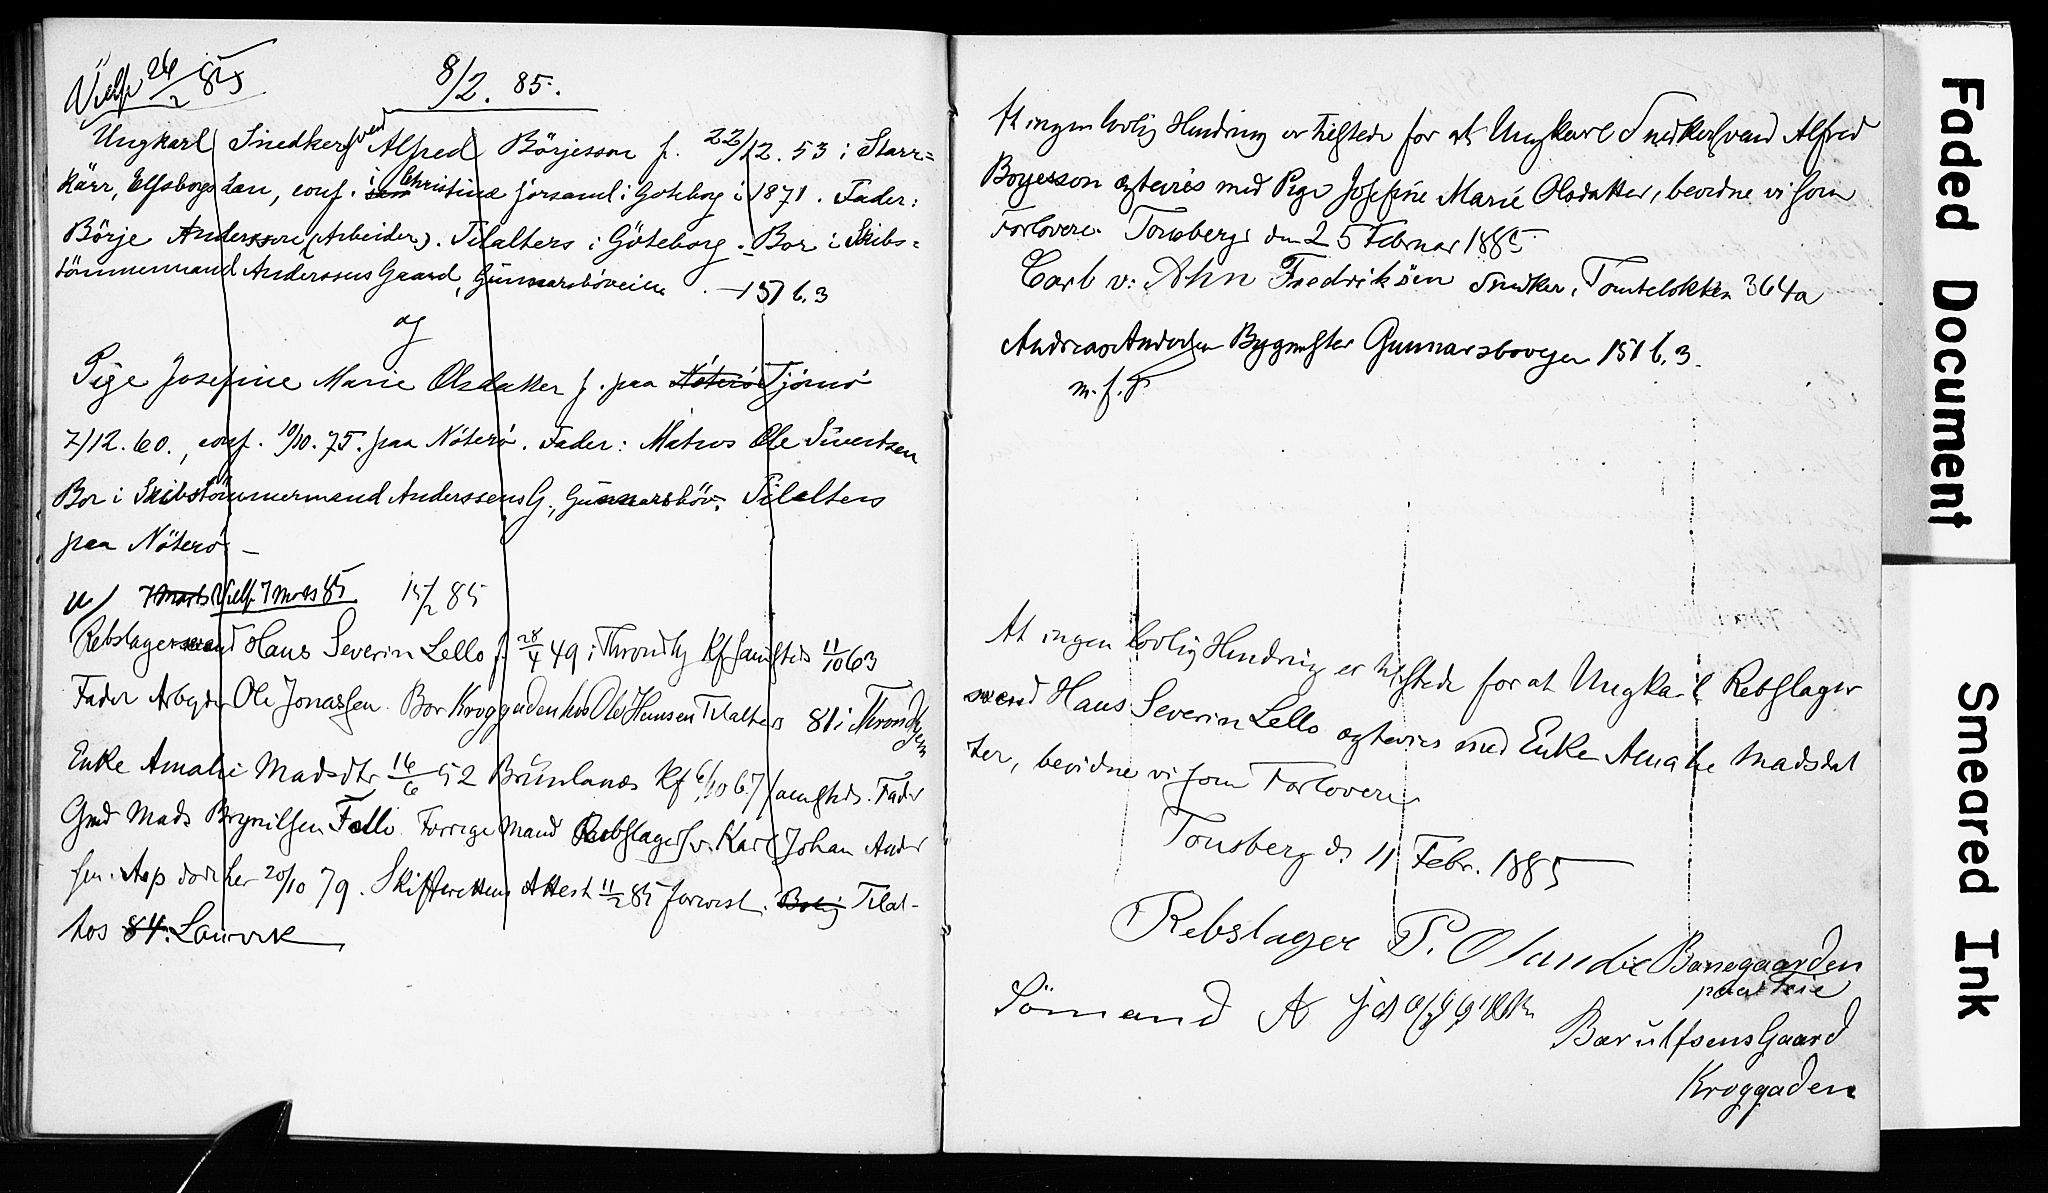 Vielse 26/2 85
8/2. 85.
Ungkarl Snedkersvend Alfred Börjesson f. 22/12. 53 i Starr=
kärr, Elfsborgs Län, conf. i Christine forsaml. i Göteborg i 1871. Fader:
Börje Andersson (Arbeider). Tilalters i Göteborg. Bor i Skibs=
tömmermand Anderssens Gaard, Gunnarsböveien 151 b. 3
og
Pige Josefine Marie Olsdatter f. paa Nöterö Tjömö
7/12. 60., conf. 10/10. 75. paa Nöterö. Fader: Matros Ole Sivertsen
Bor i Skibstömmermand Anderssens G., Gunnarsböv. Tilalters
paa Nöterö
7 Marts Vielse 7 Mars 85 15/2 85
Rebslagersvend Hans Severin Lello f. 28/4 49 i Throndhj Kf samsteds 11/10 63
Fader Arbejder Ole Jonassen. Bor Kroggaden hos Ole Hansen Tilalters 81 i Throndhjem
Enke Amalie Madsdtr 16/6 52 Brunlanæs Kf 6/10 67 samsteds. Fader
Gmd Mads Brynilsen Fallo. Forrige Mand Rebslagersv. Karl Johan Ander
sen. Asp död her 20/10 79. Skifterettens Attest 11/2 85 forevist. Bolig Tilal-
ters 84. Laurvik
At ingen lovlig Hindring er tilstede for at Ungkarl Snedkersvend Alfred
Borjesson ægtevies med Pige Josefine Marie Olsdatter, bevidne vi som
Forlovere. Tonsberg den 25 Februar 1885
Carl v: Ahn Fredriksen Snedker, Tomteløkken 364a
Andreas Andersen Bygmester Gunnarsbovejen 151 b. 3.
m. f. P
At ingen lovlig Hindring er tilstede for at Ungkarl Rebslager
svend Hans Severin Lello ægtevies med Enke Amalie Madsdat
ter, bevidne vi som Forlovere
Tonsberg d. 11 Febr. 1885
Rebslager P. Olande Banegaarden
paa Teie
Sömand A
Barulfsens Gaard
Kroggaden
Faded Document
Smeared Ink